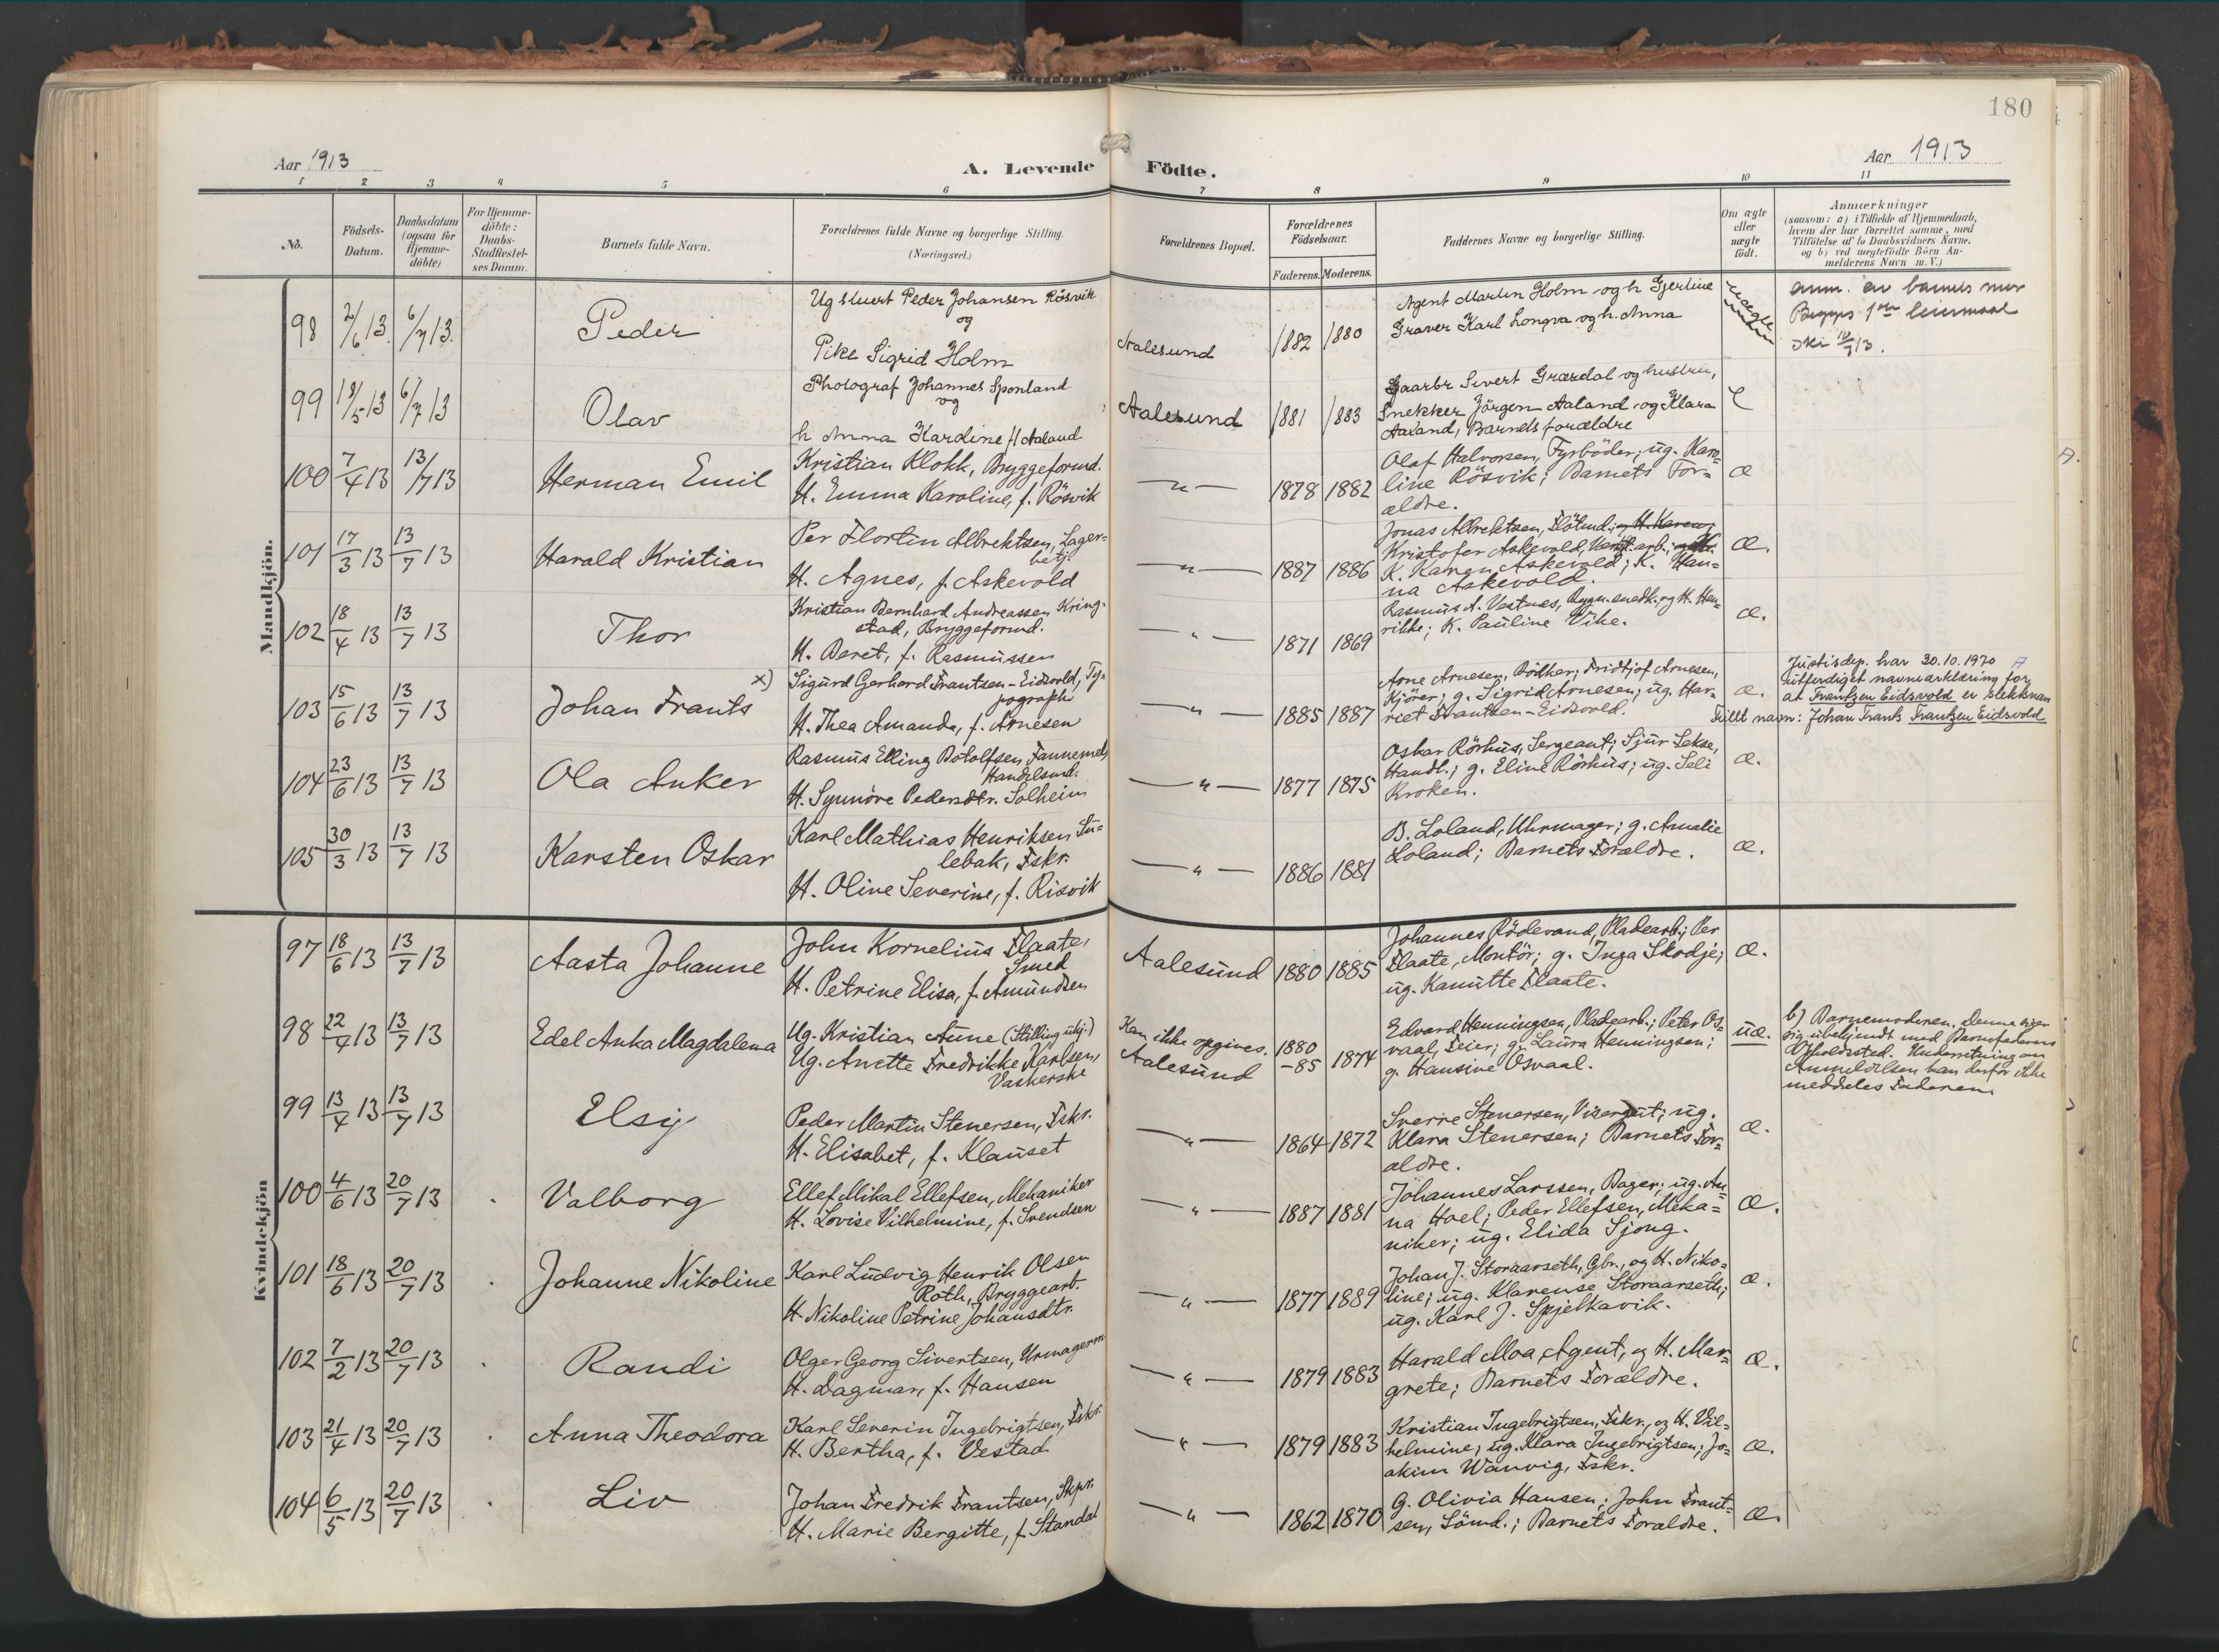 180
Aar 1913
A. Levende Födte.
Aar 1913
1 2 3 4 5 6 7 8 9 10 11
No.
Födsels-
Datum.
Daabsdatum
(ogsaa for
Hjemme-
döbte)
For Hjemme-
döbte:
Daabs-
Stadfæstel-
ses Datum.
Barnets fulde Navn.
Forældrenes fulde Navne og borgerlige Stilling.
(Næringsvei.)
Forældrenes Bopæl.
Forældrenes
Födselsaar.
Faderens. Moderens.
Faddernes Navne og borgerlige Stilling.
Om ægte
eller
uægte
födt.
Anmærkninger
(saasom: a) i Tilfælde af Hjemmedaab,
hvem der har forrettet samme, med
Tilföielse af to Daabsvidners Navne,
og b) ved uægtefödte Börn An-
melderens Navn m. V.)
Mandkjön.
98 2/6 13. 6/7 13. Peder
Ug stuert Peder Johansen Rösvik
og
Pike Sigrid Holm
Aalesund 1882 1880
Agent Martin Holm og h Gjertine
Graver Karl Longva og h. Anna
uægte
anm. av barnets mor
Begges 1ste leiermaal
99 19/5 13 6/7 13 Olav
Photograf Johannes Sponland
og
h Anna Kardine f Aaland
Aalesund 1881 1883
Gaarbr Sivert Grærdal og hustru,
Snekker Jörgen Aaland og Klara
Aaland, Barnets forældre
100 7/4 13 13/7 13 Herman Emil
Kristian Klokk, Bryggeformd.
H. Emma Karoline, f. Rösvik
— " — 1878 1882
Olaf Halvorsen, Fyrböder; ug. Karo-
line Rösvik; Barnets For-
ældre.
æ
101 17/3 13 13/7 13 Harald Kristian
Per Flortin Albrektsen, Lager-
betj.
H. Agnes, f. Askevold
— " — 1887 1886
Jonas Albrektsen, Flötmd; og H. Karen;
Kristofer Askevold, Verft.arb.;
K. Karen Askevold; K. Han-
na Askevold.
æ.
102 18/4 13 13/7 13 Thor
Kristian Bernhard Andreassen Kring-
stad, Bryggeformd.
H. Beret, f. Rasmussen
— " — 1871 1869
Rasmus A. Vestnes, Bygn.snedk. og H. Hen-
rikke; K. Pauline Vike.
æ.
103 15/6 13 13/7 13 Johan Frants x)
Sigurd Gerhard Frantsen-Eidsvold, Ty-
pograph
H. Thea Amanda, f. Arnesen
— " — 1885 1887
Arne Arnesen, Bödker; Fridtjof Arnesen,
Kjörer; g. Sigrid Arnesen; ug. Har-
riet Frantsen-Eidsvold.
æ.
Justisdep. har 30.10.1970
utferdiget navneerklæring for
at Frantzen Eidsvold er slektsnavn
Fullt navn: Johan Frants Frantzen Eidsvold
104 23/6 13 13/7 13 Ola Anker
Rasmus Elling Botolfsen Tannemels
Handelsmd.
H. Synnöve Pedersdtr. Solheim
— " — 1877 1875
Oskar Rörhus, Sergeant; Sjur Sekse,
Handl.; g. Eline Rörhus; ug. Seli
Kroken.
æ.
105 30/3 13 13/7 13 Karsten Oskar
Karl Mathias Henriksen Su-
lebak, Fskr.
H. Oline Severine, f. Risvik
— " — 1886 1881
B. Loland, Uhrmager; g. Amalie
Loland; Barnets Forældre.
æ.
Kvindekjön
97 18/6 13 13/7 13 Aasta Johanne
John Kornelius Flaate,
Smed
H. Petrine Elisa, f. Amundsen
Aalesund 1880 1885
Johannes Rödevand, Pladearb.; Per
Flaate, Montör; g. Inga Skodje;
ug. Kanutte Flaate.
æ.
98 22/4 13 13/7 13 Edel Anka Magdalena
Ug. Kristian Aune (Stilling ubj.)
Ug. Anette Fredrikke Karlsen,
Vaskerske
Kan ikke opgives.
Aalesund
1880
-85 1874
Edvard Henningsen, Pladearb.; Peter Os-
vaal, Feier; g. Laura Henningsen;
g. Hansine Osvaal.
uæ.
b) Barnemoderen. Denne siger
sig ubekjendt med Barnefaderens
Opholdssted. Underretning om
Anmeldelsen kan derfor ikke
meddeles Faderen.
99 13/4 13 13/7 13 Elsy
Peder Martin Stenersen, Fskr.
H. Elisabet, f. Klauset
— " — 1864 1872
Sverre Stenersen, Visergut; ug.
Klara Stenersen; Barnets For-
ældre.
æ.
100 4/6 13 20/7 13 Valborg
Ellef Mikal Ellefsen, Mekaniker
H. Lovise Vilhelmine, f. Svendsen
— " — 1887 1881
Johannes Larssen, Bager; ug. An-
na Hoel; Peder Ellefsen, Meka-
niker; ug. Elida Sjong.
æ.
101 18/6 13 20/7 13 Johanne Nikoline
Karl Ludvig Henrik Olsen
Roth, Bryggearb.
H. Nikoline Petrine Johansdtr.
— " — 1877 1889
Johan J. Storaarseth, Gbr., og H. Niko-
line; ug. Klarense Storaarseth;
ug. Karl J. Spjelkavik.
æ.
102 7/2 13 20/7 13 Randi
Olger Georg Sivertsen, Urmagerm
H. Dagmar, f. Hansen
— " — 1879 1883
Harald Moa, Agent, og H. Mar-
grete; Barnets Forældre.
æ.
103 21/4 13 20/7 13 Anna Theodora
Karl Severin Ingebrigtsen, Fskr.
H. Bertha, f. Vestad
— " — 1879 1883
Kristian Ingebrigtsen, Fskr., og H. Vil-
helmine; ug. Klara Ingebrigtsen; Jo-
akim Wanvig, Fskr.
æ.
104 6/5 13 20/7 13 Liv
Johan Fredrik Frantsen, Skpr.
H. Marie Bergitte, f. Standal
— " — 1862 1870
G. Olivia Hansen; John Frant-
sen, Sömd.; Barnets Forældre.
æ.